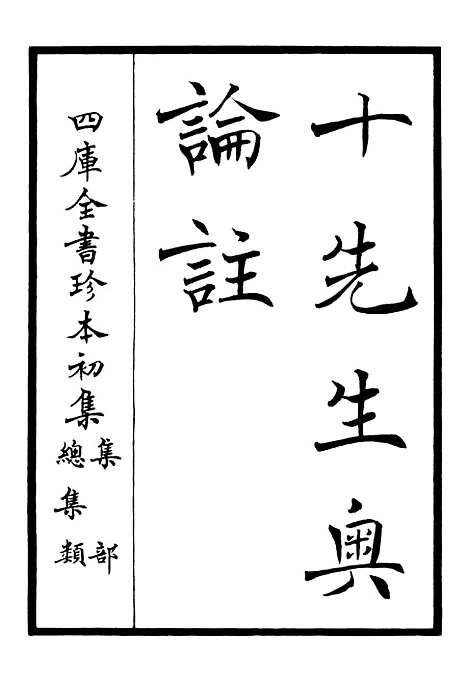 十先生奧
論註
四庫全書珍本初集
集部
總集類